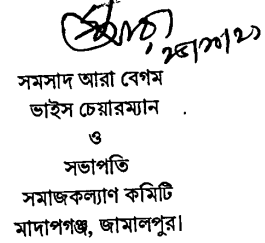 সমসাদ আরা বেগম
ভাইস চেয়ারম্যান
ও
সভাপতি
সমাজকল্যাণ কমিটি
মাদাপগঞ্জ, জামালপুর।